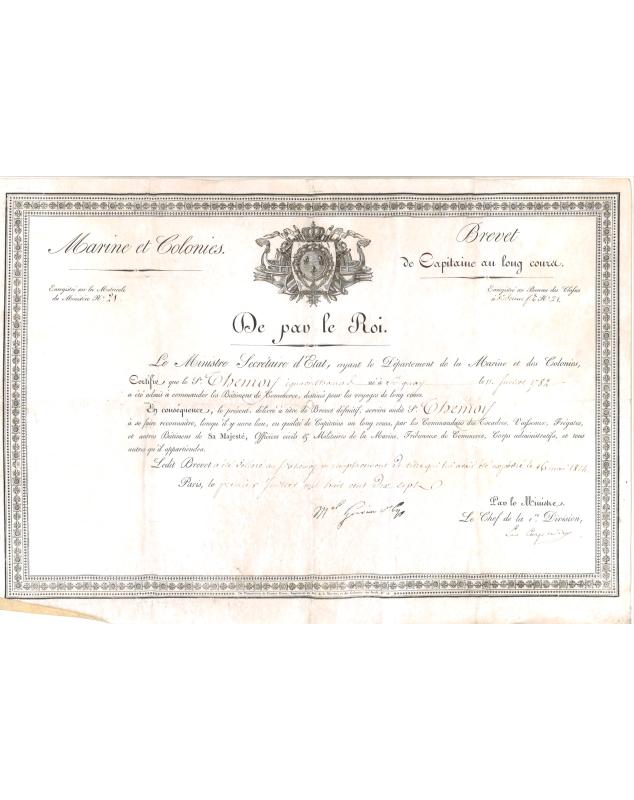 Marine et Colonies.
Brevet
de Capitaine au long cours.
Enregistré sur la Matricule
du Ministère N.º 21
Enregistré au Bureau des Classes
à N.º 21.
De par le Roi.
Le Ministre Secrétaire d'Etat, ayant le Département de la Marine et des Colonies,
Certifie que le S.r Chemoy né à le 11 juillet 1782
a été admis à commander les Bâtimens du Commerce, destinés pour les voyages de long cours.
En conséquence, le présent, délivré à titre de Brevet définitif, servira audit S.r Chemoy
à se faire reconnaître, lorsqu'il y aura lieu, en qualité de Capitaine au long cours, par les Commandans des Escadres, Vaisseaux, Frégates,
et autres Bâtimens de Sa Majesté, Officiers civils & Militaires de la Marine, Tribunaux de Commerce, Corps administratifs, et tous
autres qu'il appartiendra.
Ledit Brevet a été délivré au en remplacement de celui qui lui avait été expédié le 16 mai 1814
Paris, le premier mil huit cent dix sept
Par le Ministre.
Le Chef de la 1.re Division,